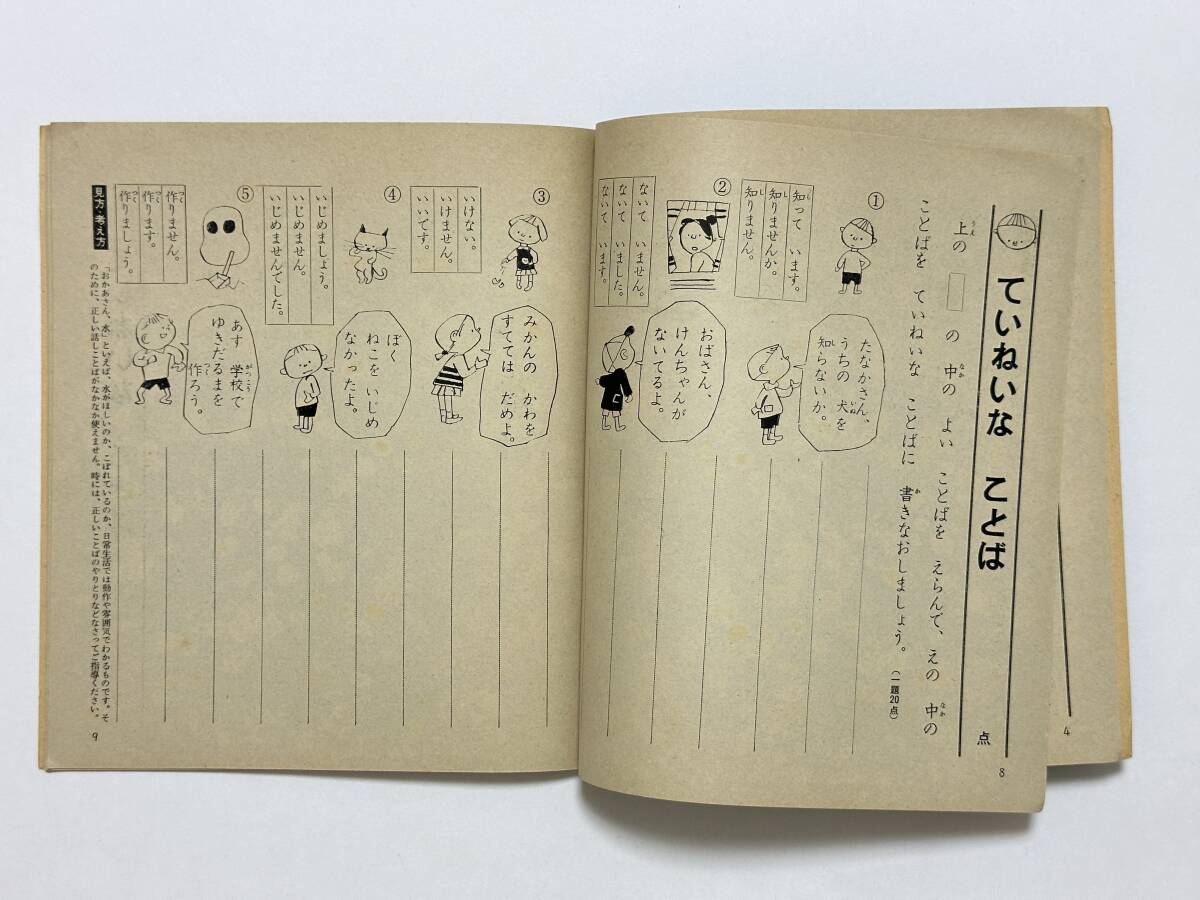 ていねいな ことば
点
上の の 中の よい ことばを えらんで、えの 中の
ことばを ていねいな ことばに 書きなおしましょう。
(一題20点)
①
知って います。
知りませんか。
知りません。
たなかさん、
うちの 犬を
知らないか。
②
ないて いません。
ないて いました。
ないて います。
おばさん、
けんちゃんが
ないてるよ。
8
4
③
いけない。
いけません。
いいです。
みかんの かわを
すてては だめよ。
④
いじめましょう。
いじめません。
いじめませんでした。
ぼく
ねこを いじめ
なかったよ。
⑤
作りません。
作ります。
作りましょう。
あす 学校で
ゆきだるまを
作ろう。
見方・考え方
「おかあさん、水」といえば、水がほしいのか、こぼれているのか、日常生活では動作や雰囲気でわかるものです。そ
のために、正しい話しことばがなかなか使えません。時には、正しいことばのやりとりなどなさってご指導ください。
9